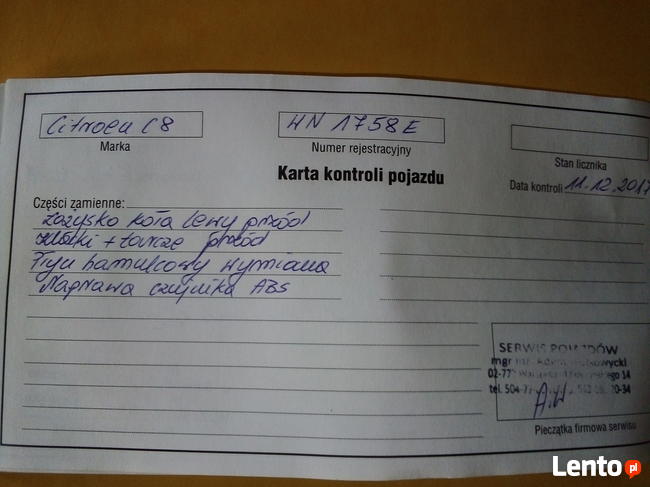 Citroen C8
WN 1758E
Marka
Numer rejestracyjny
Stan licznika
Karta kontroli pojazdu
Data kontroli 11.12.2017
Części zamienne:
Łożysko koła lewy przód
Klocki + tarcze przód
Płyn hamulcowy wymiana
Naprawa czujnika ABS
SERWIS POJAZDÓW
mgr inż. Adam
02-77 14
tel. 504-7 20-34
A.W
Pieczątka firmowa serwisu
Lento.pl